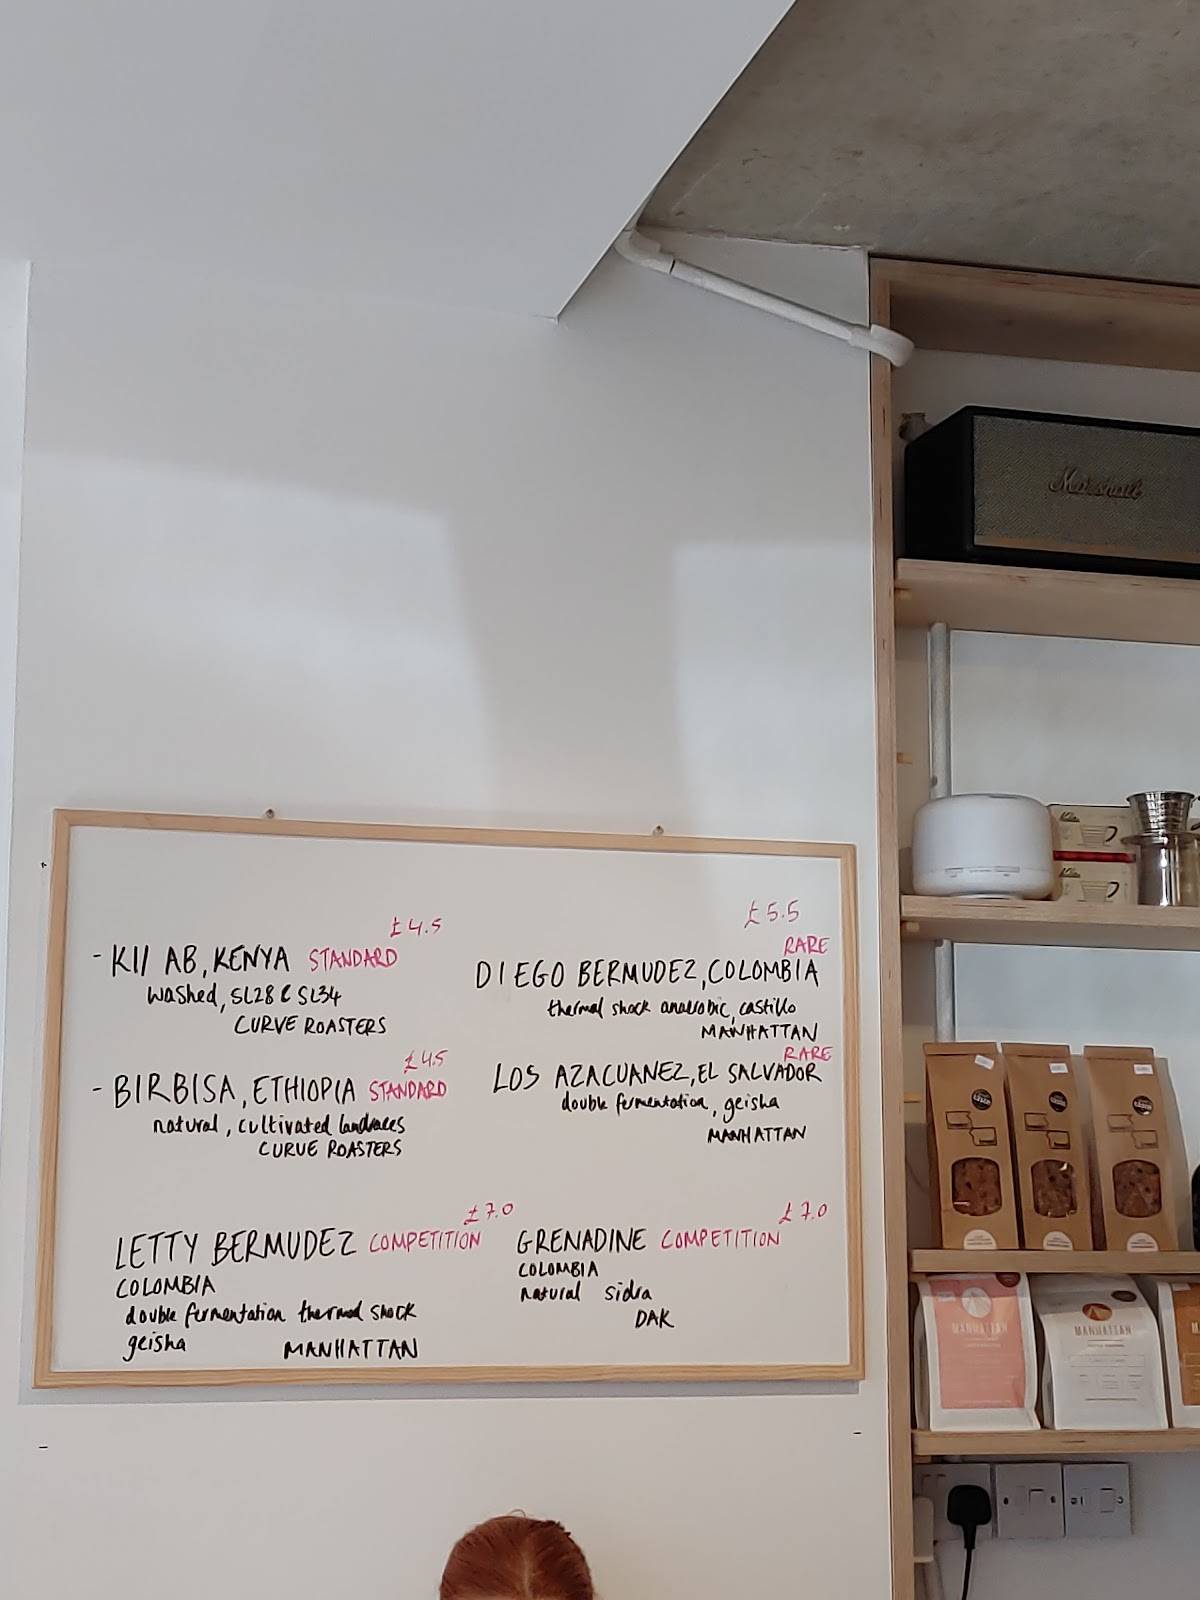 Marshall
£4.5
- KII AB, KENYA STANDARD
washed, SL28 & SL34
CURVE ROASTERS
£4.5
- BIRBISA, ETHIOPIA STANDARD
natural, cultivated landraces
CURVE ROASTERS
£5.5
RARE
DIEGO BERMUDEZ, COLOMBIA
thermal shock anaerobic, castillo
MANHATTAN
RARE
LOS AZACUANEZ, EL SALVADOR
double fermentation, geisha
MANHATTAN
£7.0
LETTY BERMUDEZ COMPETITION
COLOMBIA
double fermentation thermal shock
geisha MANHATTAN
£7.0
GRENADINE COMPETITION
COLOMBIA
natural sidra
DAK
MANHATTAN
MANHATTAN